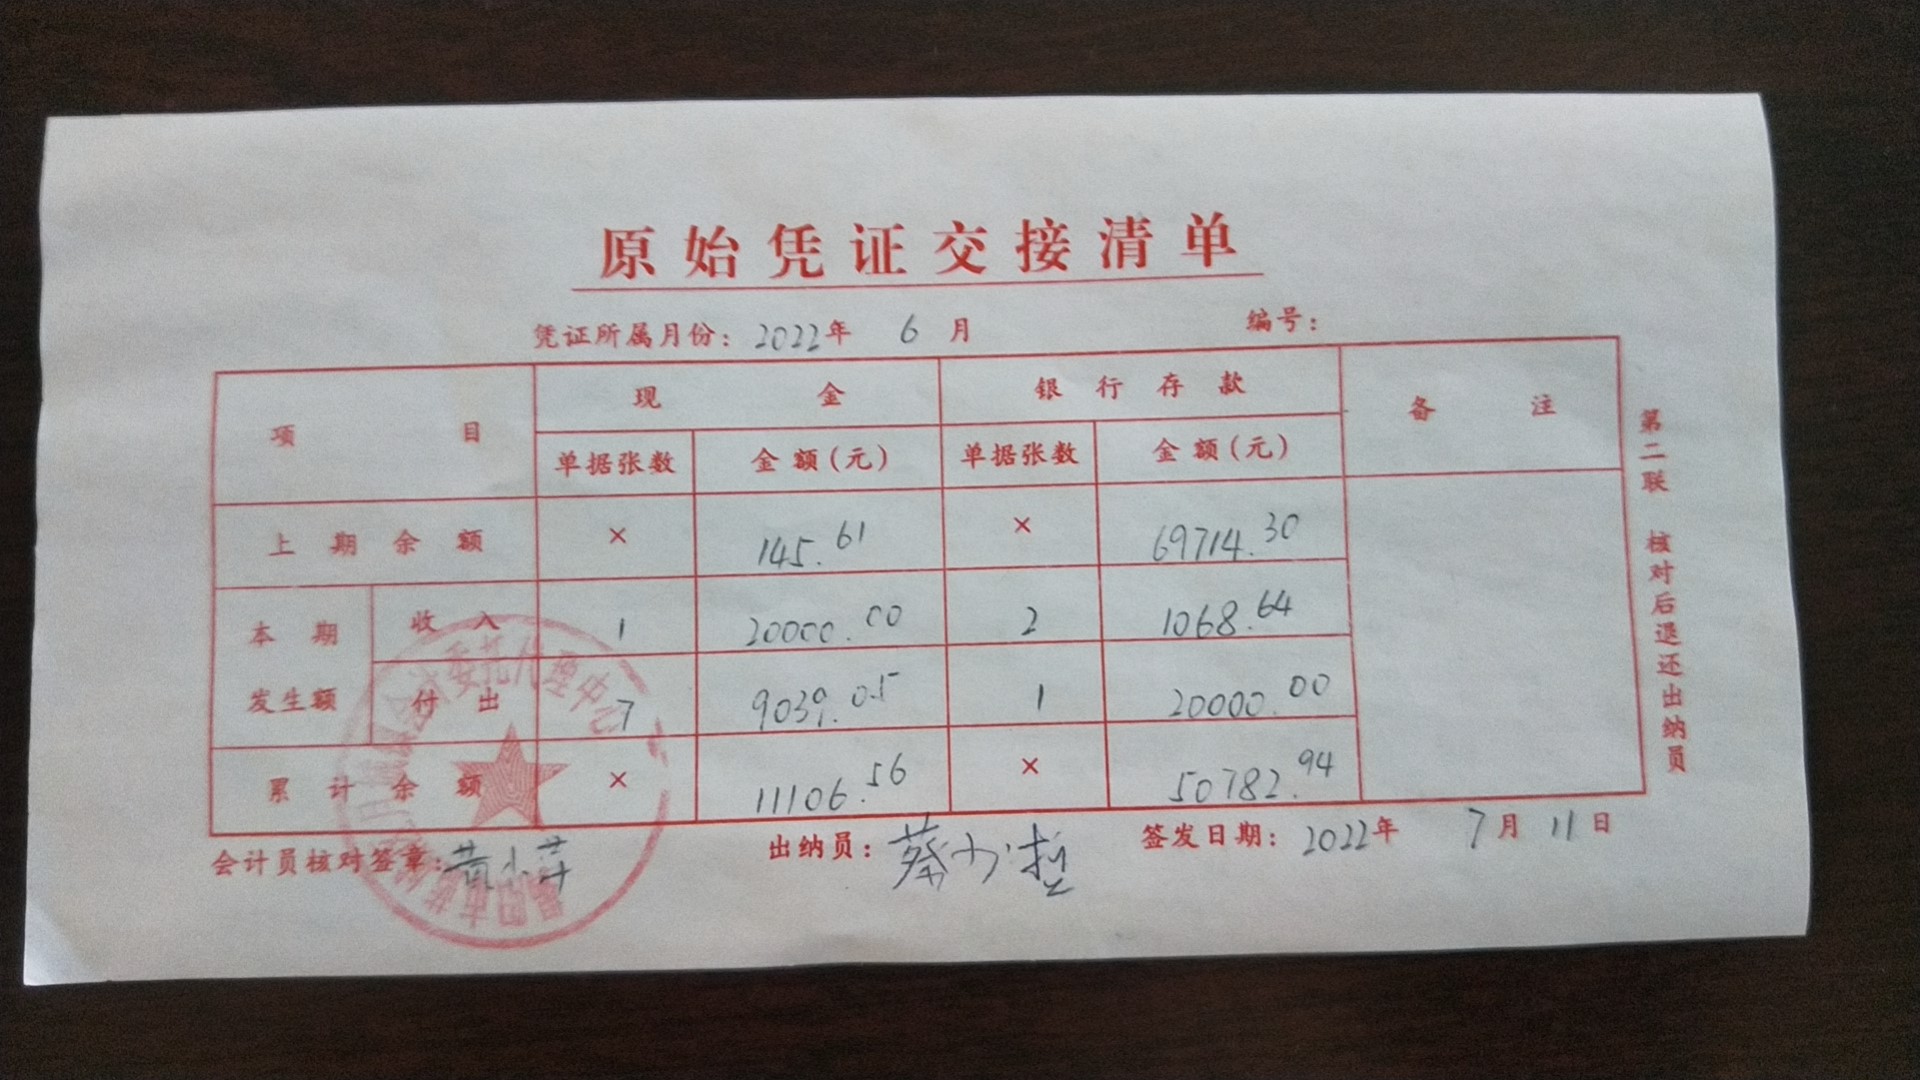 原始凭证交接清单
凭证所属月份：2022年 6月 编号：
项目 现金 银行存款 备注
单据张数 金额(元) 单据张数 金额(元)
上期余额 × 145.61 × 69714.30
本期发生额 收入 1 20000.00 2 1068.64
付出 7 9039.05 1 20000.00
累计余额 × 11106.56 × 50782.94
会计员核对签章： 出纳员： 签发日期：2022年 7月 11日
第二联 核对后退还出纳员
委托代理中心